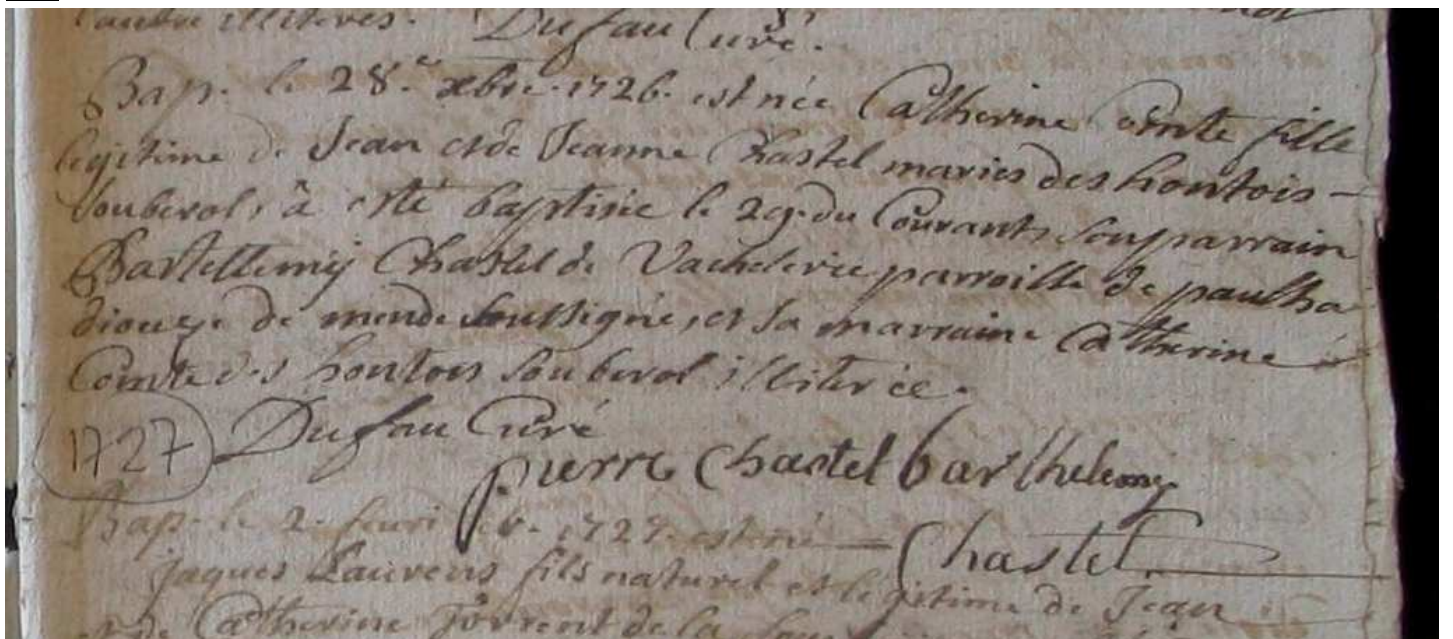 l'autre illiteres. Dufau Curé.
Bap. le 28.e xbre. 1726. est née Catherine Comte fille
legitime de Jean et de Jeanne Chastel maries des hontois
souberol, à esté baptisée le 29. du Courant, son parrain
Bartellemy Chastel de Vachelerie parroisse de paulha
dioceze de mende soussigné, et sa marraine Catherine
Comte des hontois souberol illiterée.
1727 Dufau Curé
pierre Chastel barthelemy
Chastel
Bap. le 2. 1727. est né
jaques Laurens fils naturel et legitime de Jean
et de Catherine Torrent de la